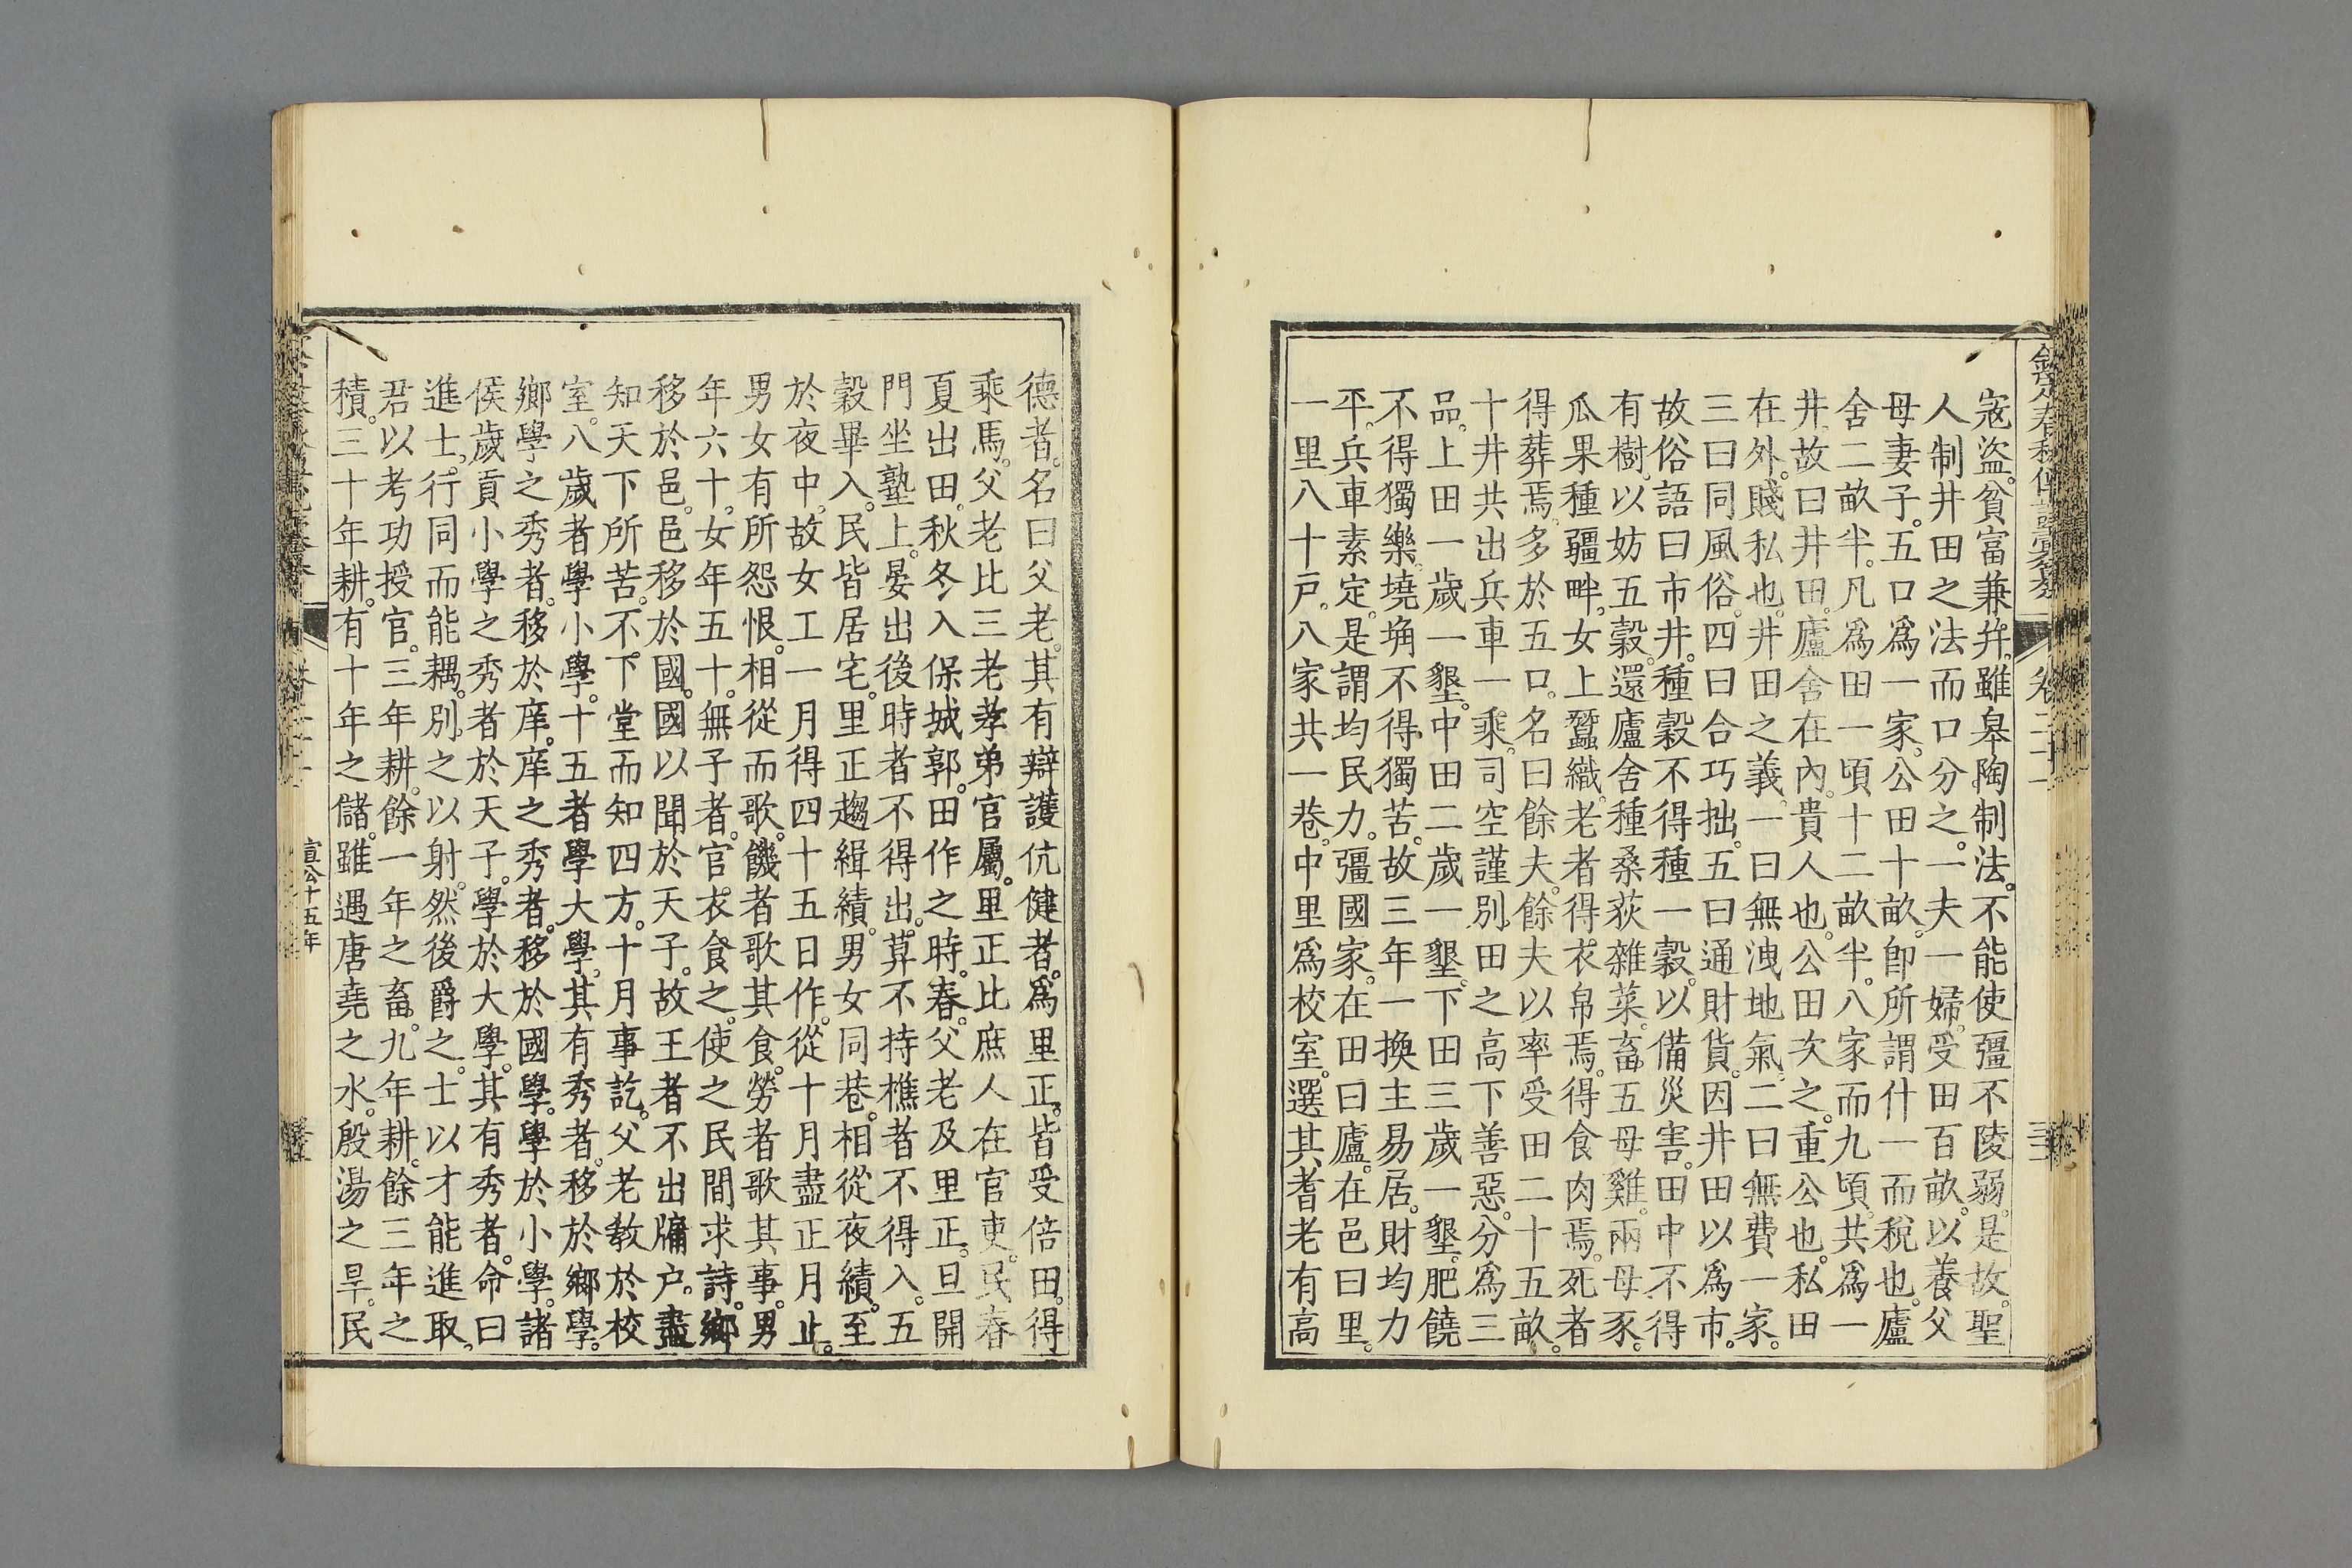 寇盜。貧富兼幷。雖皋陶制法。不能使彊不陵弱。是故。聖
人制井田之法而口分之。一夫一婦。受田百畝。以養父
母妻子。五口爲一家。公田十畝。卽所謂什一而稅也。廬
舍二畝半。凡爲田一頃十二畝半。八家而九頃。共爲一
井。故曰井田。廬舍在內。貴人也。公田次之。重公也。私田
在外。賤私也。井田之義。一曰無洩地氣。二曰無費一家。
三曰同風俗。四曰合巧拙。五曰通財貨。因井田以爲市。
故俗語曰市井。種穀不得種一穀。以備災害。田中不得
有樹。以妨五穀。還廬舍種桑荻雜菜。畜五母雞。兩母豕。
瓜果種疆畔。女上蠶織。老者得衣帛焉。得食肉焉。死者
得葬焉。多於五口。名曰餘夫。餘夫以率受田二十五畝。
十井共出兵車一乘。司空謹別田之高下善惡。分爲三
品。上田一歲一墾。中田二歲一墾。下田三歲一墾。肥饒
不得獨樂。墝埆不得獨苦。故三年一換主易居。財均力
平。兵車素定。是謂均民力。彊國家。在田曰廬。在邑曰里。
一里八十戸。八家共一巷。中里爲校室。選其耆老有高
卷二十一
德者。名曰父老。其有辯護伉健者。爲里正。皆受倍田。得
乘馬。父老比三老孝弟官屬。里正比庶人在官吏。民春
夏出田。秋冬入保城郭。田作之時。春。父老及里正。旦開
門坐塾上。晏出後時者不得出。莫不持樵者不得入。五
穀畢入。民皆居宅。里正趨緝績。男女同巷。相從夜績。至
於夜中。故女工一月得四十五日作。從十月盡正月止。
男女有所怨恨。相從而歌。饑者歌其食。勞者歌其事。男
年六十。女年五十。無子者。官衣食之。使之民間求詩。鄉
移於邑。邑移於國。國以聞於天子。故王者不出牖户。盡
知天下所苦。不下堂而知四方。十月事訖。父老敎於校
室。八歲者學小學。十五者學大學。其有秀者。移於鄉學。
鄉學之秀者。移於庠。庠之秀者。移於國學。學於小學。諸
侯歲貢小學之秀者於天子。學於大學。其有秀者。命曰
進士。行同而能耦。別之以射。然後爵之。士以才能進取。
君以考功授官。三年耕。餘一年之畜。九年耕。餘三年之
積。三十年耕。有十年之儲。雖遇唐堯之水。殷湯之旱。民
宣公十五年